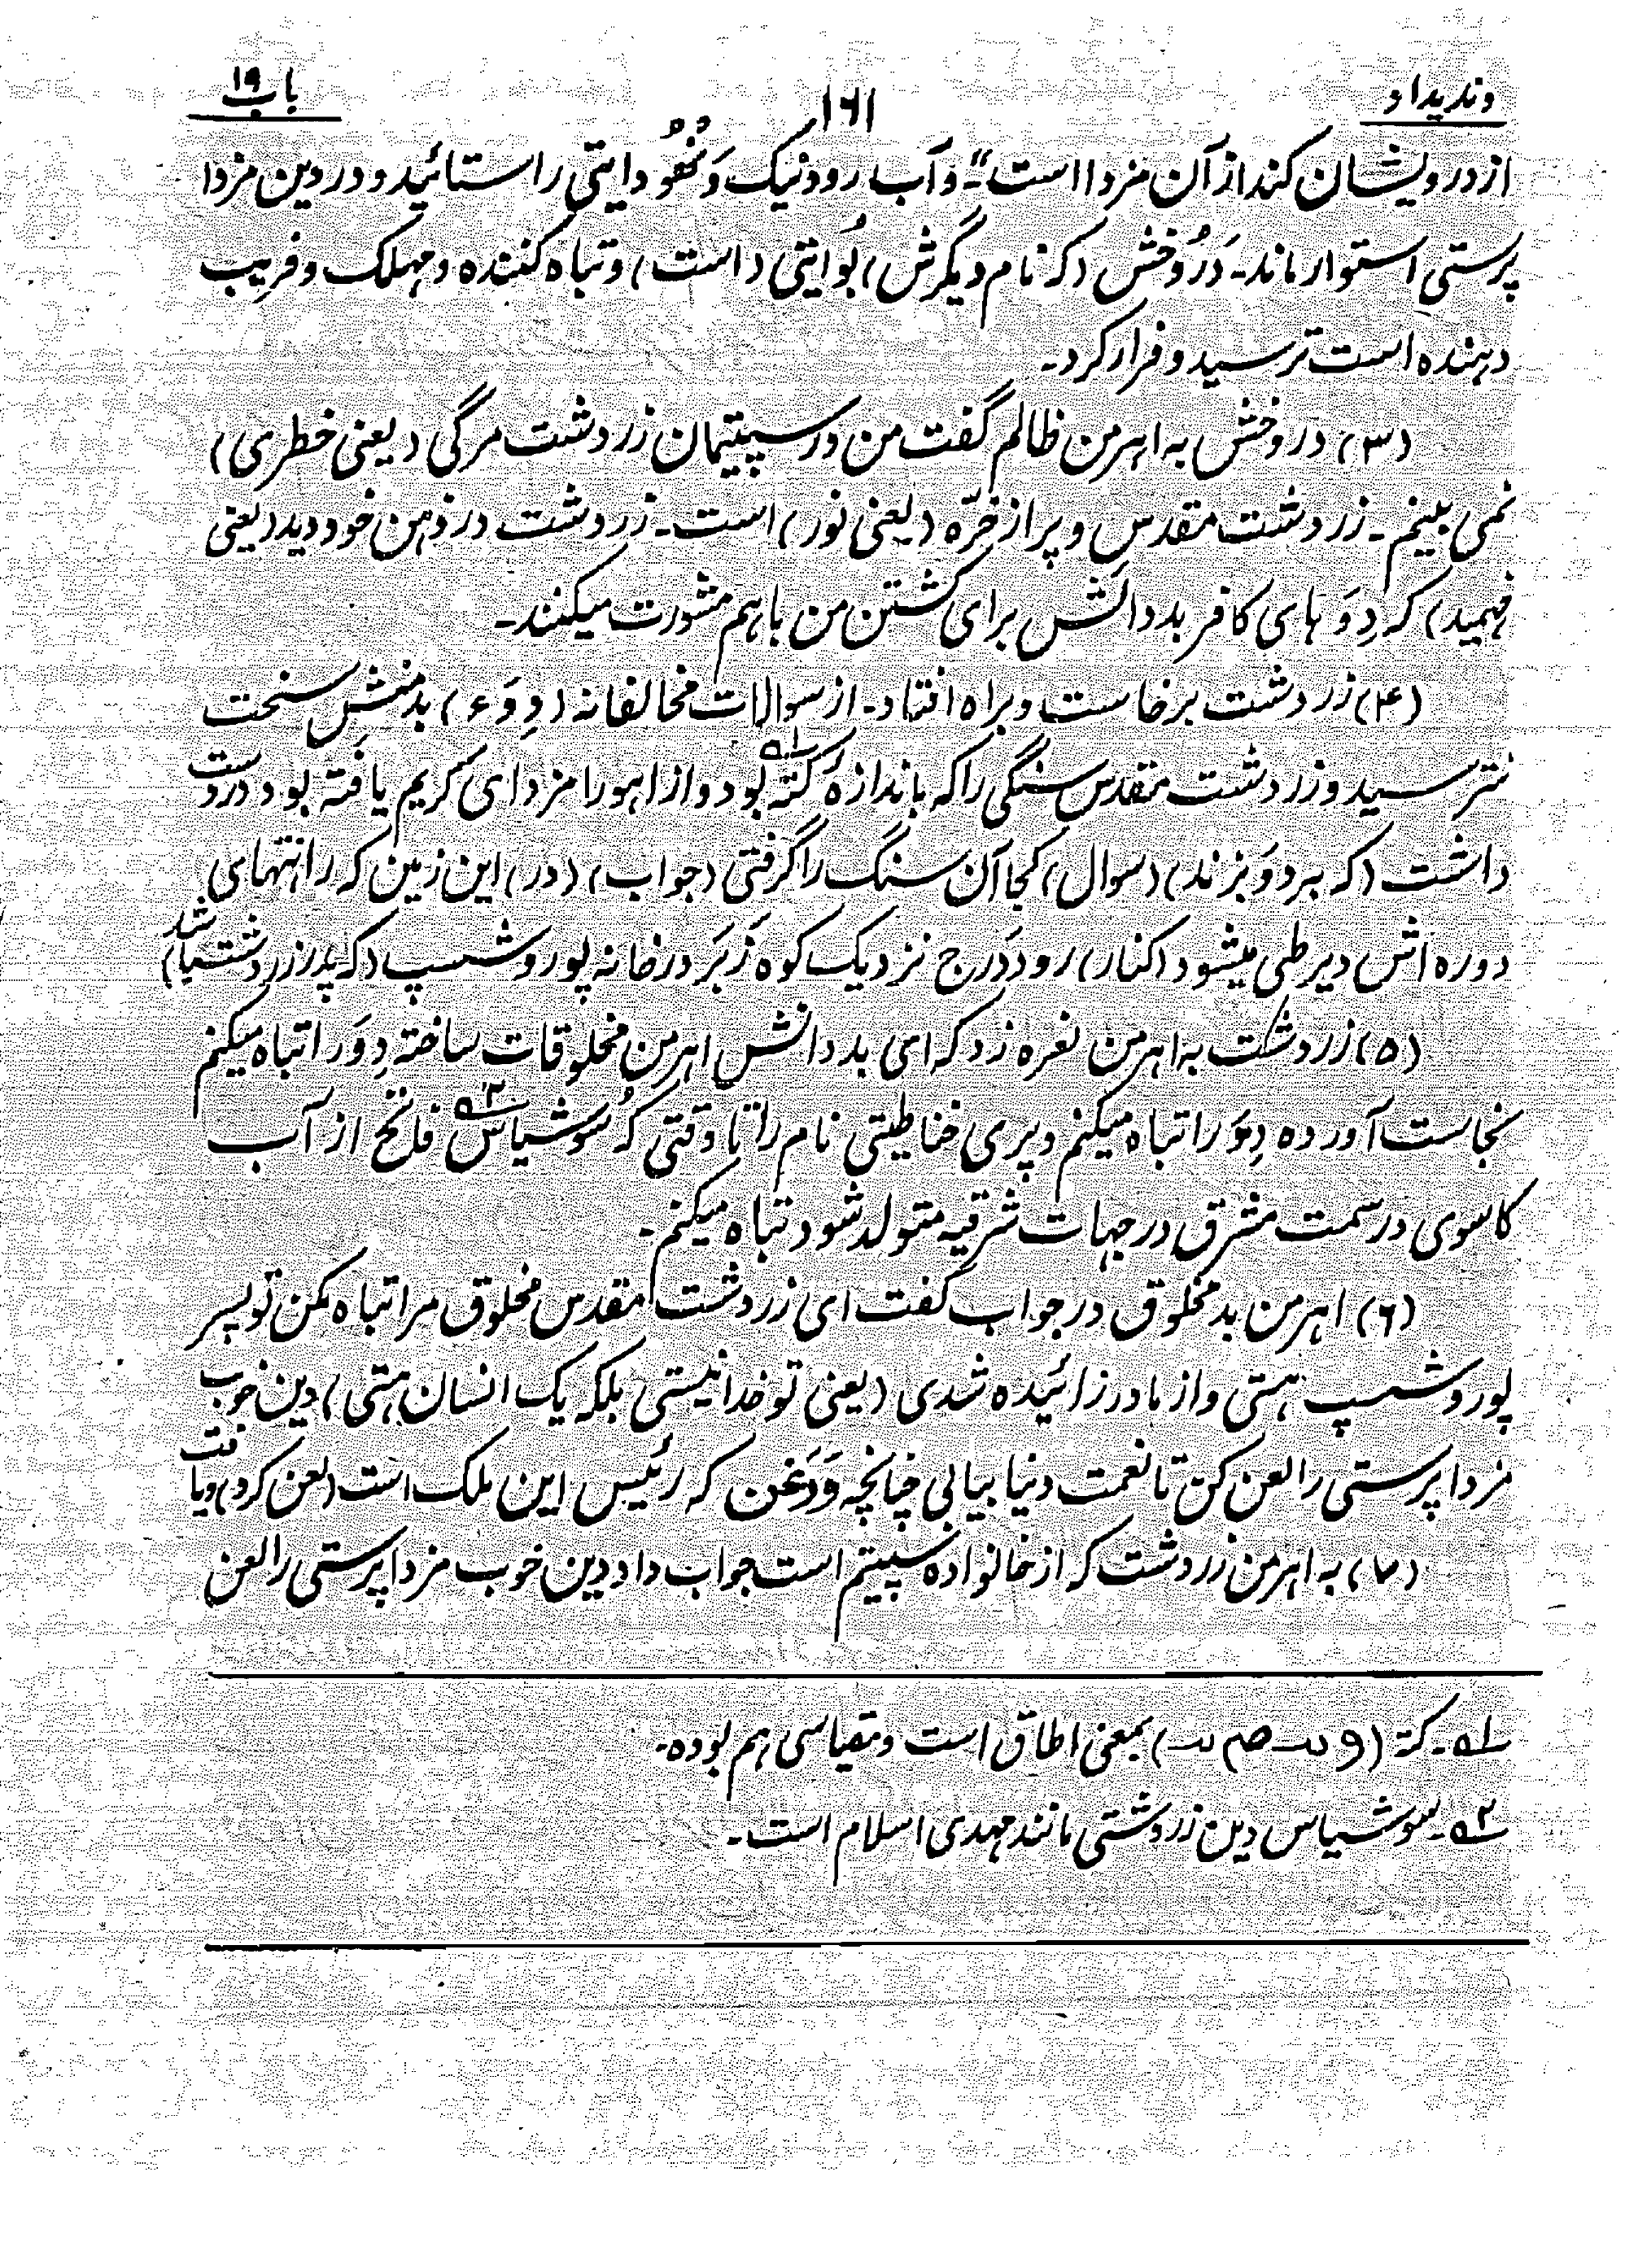 وندیداد
۱۶۱
باب ۱۹
از درویشان کند از آن مزدا است" ـ و آب رود نیک وَنْهُو دایتی را ستائید و در دین مزدا
پرستی استوار ماند ـ دَرُوخش (که نام دیگرش) بُوایتی (است) و تباه کننده و مهلک و فریب
دهنده است ترسید و فرار کرد ـ
(۳) دروخش به اهرمن ظالم گفت من در سپیتمان زردشت مرگی (یعنی خطری)
نمی بینم ـ زردشت مقدس و پر از خرّه (یعنی نور) است ـ زردشت در ذهن خود دید (یعنی
فهمید) که دِوَ های کافر بد دانش برای کشتن من باهم مشورت میکنند ـ
(۴) زردشت برخاست و براه افتاد ـ از سوالات مخالفانه (دِوَء) بد منشِ سخت
نترسید و زردشت مقدس سنگی را که باندازهٔ کَتَه ۱ بود و از اهورا مزدای کریم یافته بود در دست
داشت (که به دِوَ بزند) (سوال) کجا آن سنگ را گرفتی (جواب) (در) این زمین که را انتهای
دوره اش دیر طی میشود (کنار) رود دَرَرج نزدیک کوه زَبَر در خانه پوروشسپ (که پدر زردشت میباشد)
(۵) زردشت به اهرمن نعره زد که ای بد دانش اهرمن مخلوقات ساخته دِوَ را تباه میکنم
نجاست آورده دِوَ را تباه میکنم و پری خناطیتی نام را تا وقتی که سُوشیاس ۲ فاتح از آب
کاسوی در سمت مشرق در جهات شرقیه متولد شود تباه میکنم ـ
(۶) اهرمن بد مخلوق در جواب گفت ای زردشت مقدس مخلوق مرا تباه مکن تو پسر
پوروشسپ هستی و از مادر زائیده شدی (یعنی تو خدا نیستی بلکه یک انسان هستی) دین خوب
مزدا پرستی را لعن کن تا نعمت دنیا بیابی چنانچه وَدَغن که رئیس این ملک است (لعن کرد) و یافت
(۷) به اهرمن زردشت که از خانواده سپیتم است جواب داد دین خوب مزدا پرستی را لعن
۱ ـ کته بمعنی اطاق است و مقیاسی هم بوده ـ
۲ ـ سوشیاس دین زردشتی مانند مهدی اسلام است ـ